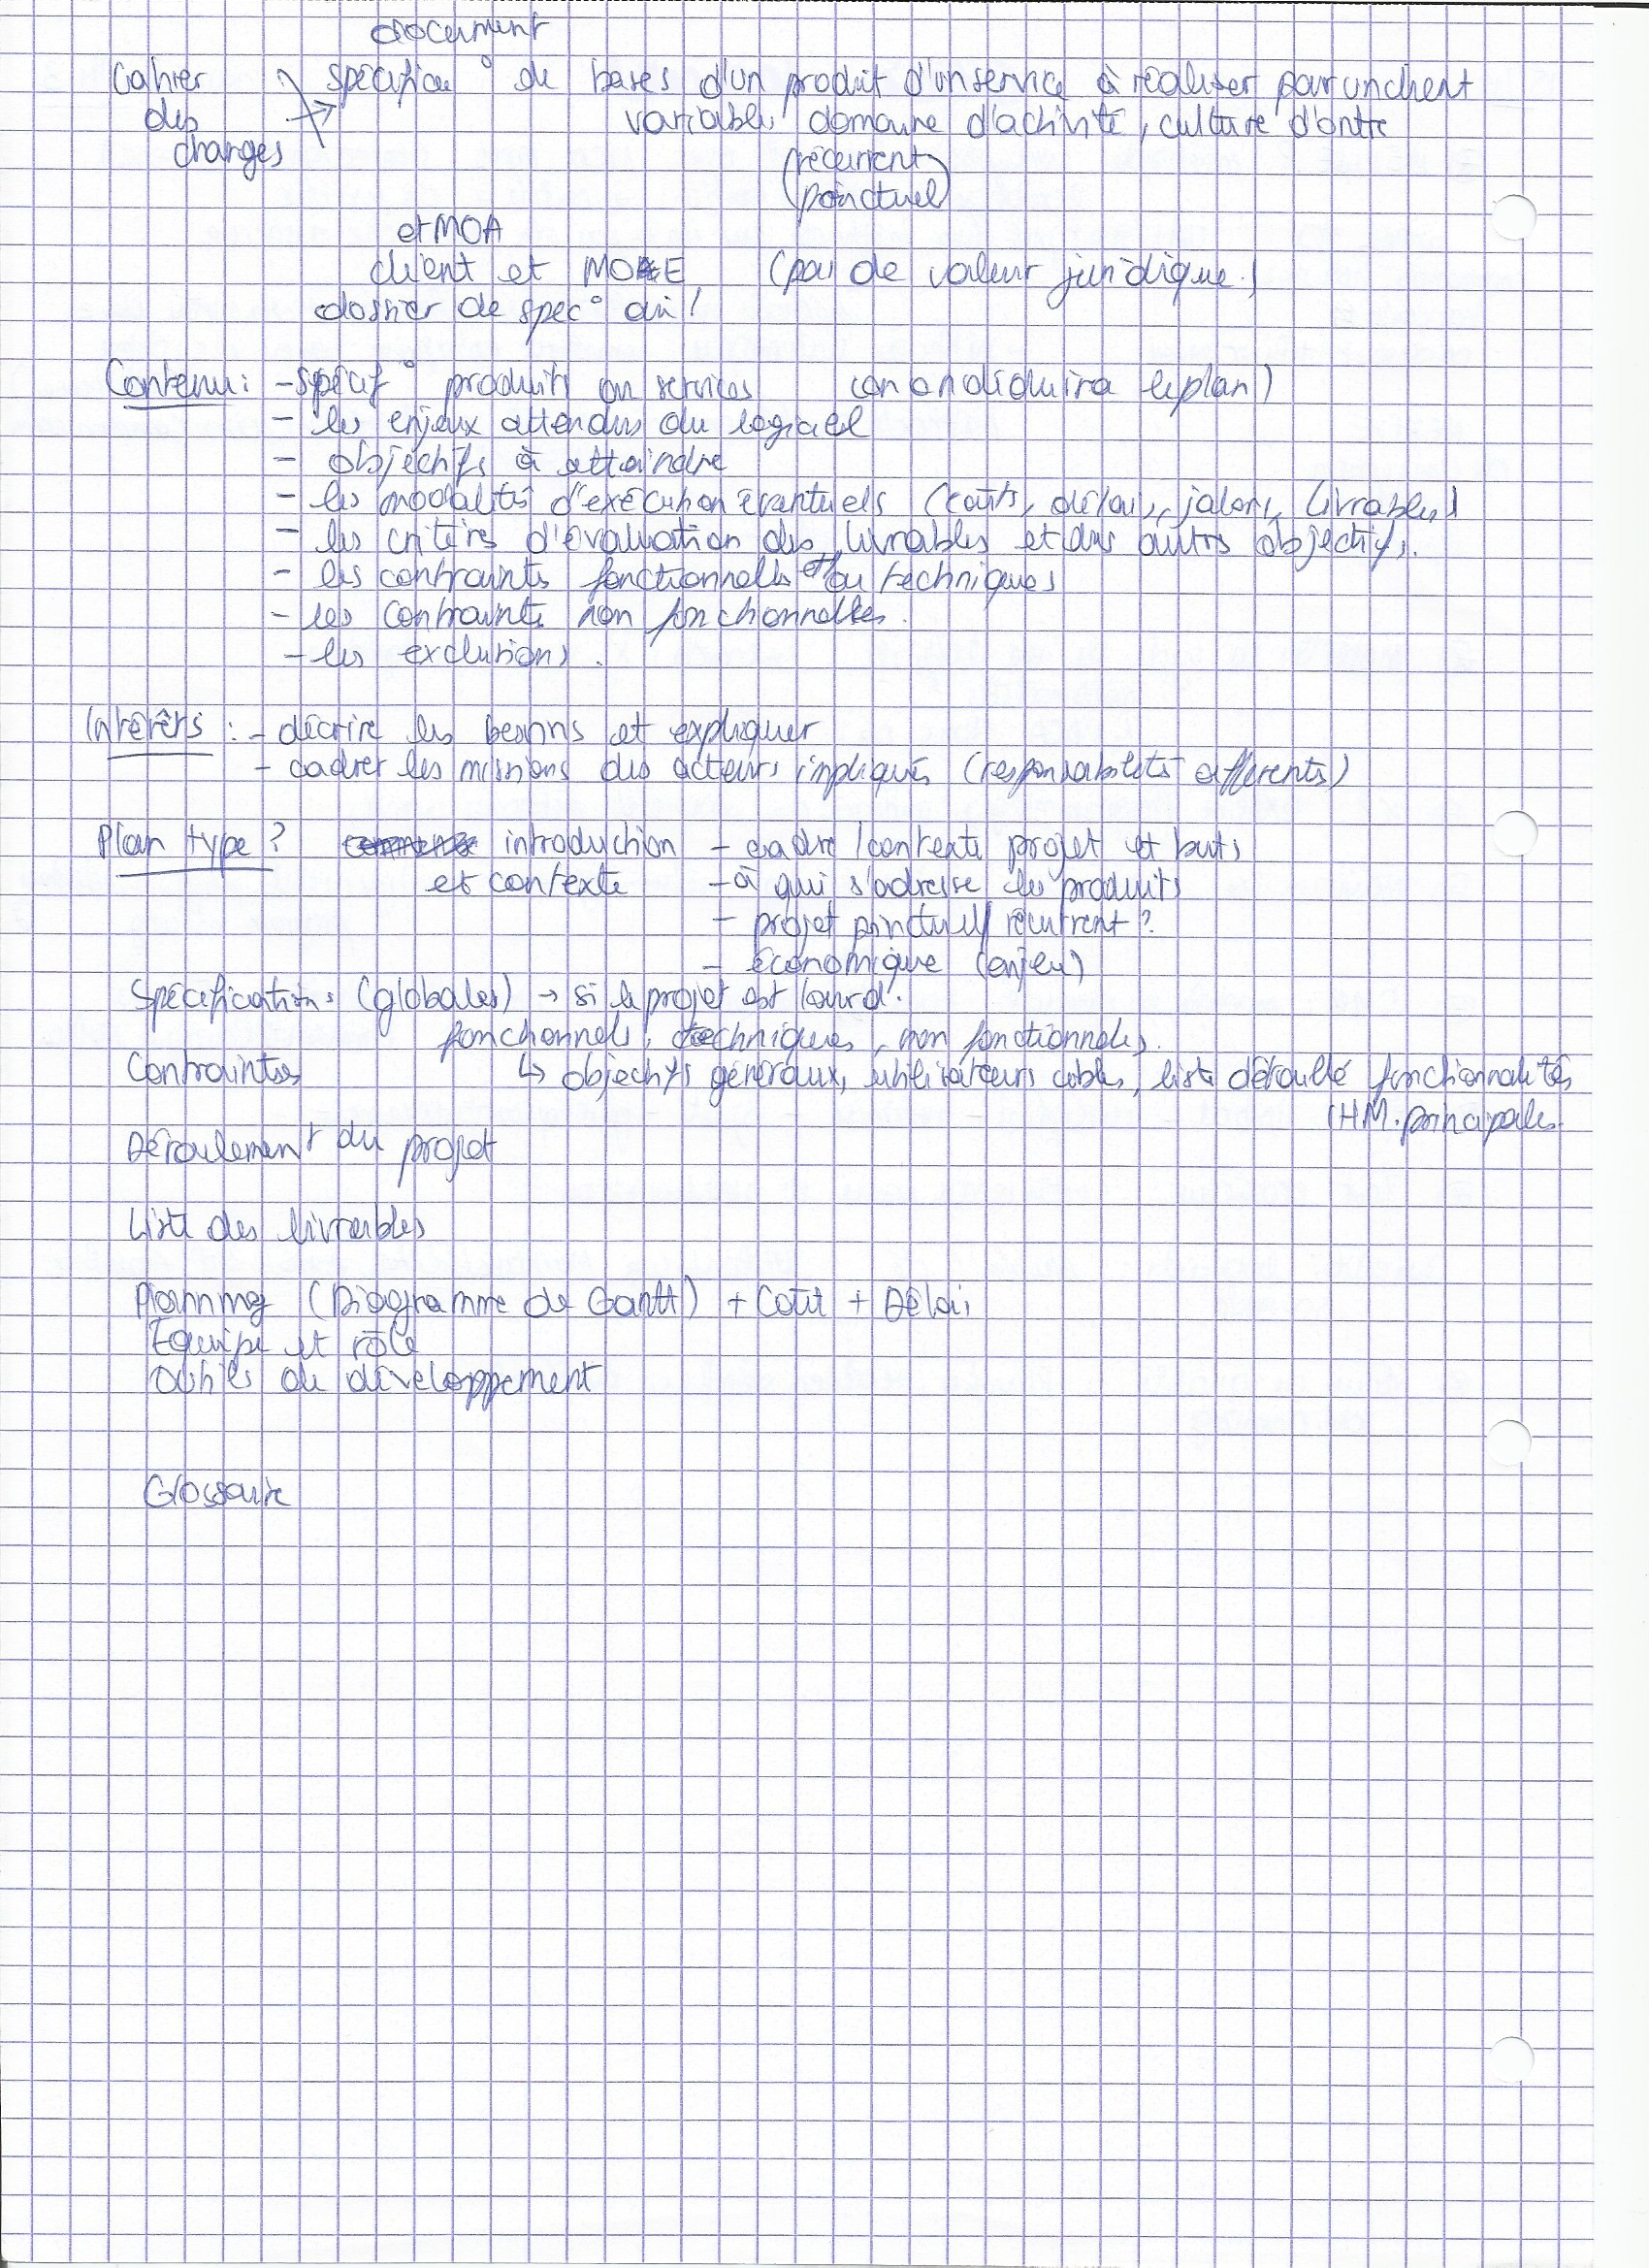 document
Cahier des charges → spécifica° de bases d'un produit d'un service à réaliser par un client
variable, domaine d'activité, culture d'entre
(récurrent
ponctuel)
et MOA
client et MOE (pas de valeur juridique)
dossier de spec° oui!
Contenu: - spécif° produits ou services (on en déduira le plan)
- les enjeux attendus du logiciel
- objectifs à atteindre
- les modalités d'exécution éventuels (coûts, délai, jalons, livrables)
- les critères d'évaluation des livrables et des autres objectifs.
- les contraintes fonctionnelles et/ou techniques
- les contraintes non fonctionnelles.
- les exclusions.
Intérêts : - décrire les besoins et expliquer
- cadrer les missions des acteurs impliqués (responsabilités afférents)
Plan type ? introduction - cadre/contexte projet et buts
et contexte - à qui s'adresse les produits
- projet ponctuel/récurrent ?
- économique (enjeu)
Spécifications (globales) → si le projet est lourd.
fonctionnels, techniques, non fonctionnels.
Contraintes ↳ objectifs généraux, utilisateurs cibles, liste déroulé fonctionnalités
IHM principales.
Déroulement du projet
Liste des livrables
Planning (Diagramme de Gantt) + Coût + Délai
Equipe et rôle
Outils de développement
Glossaire